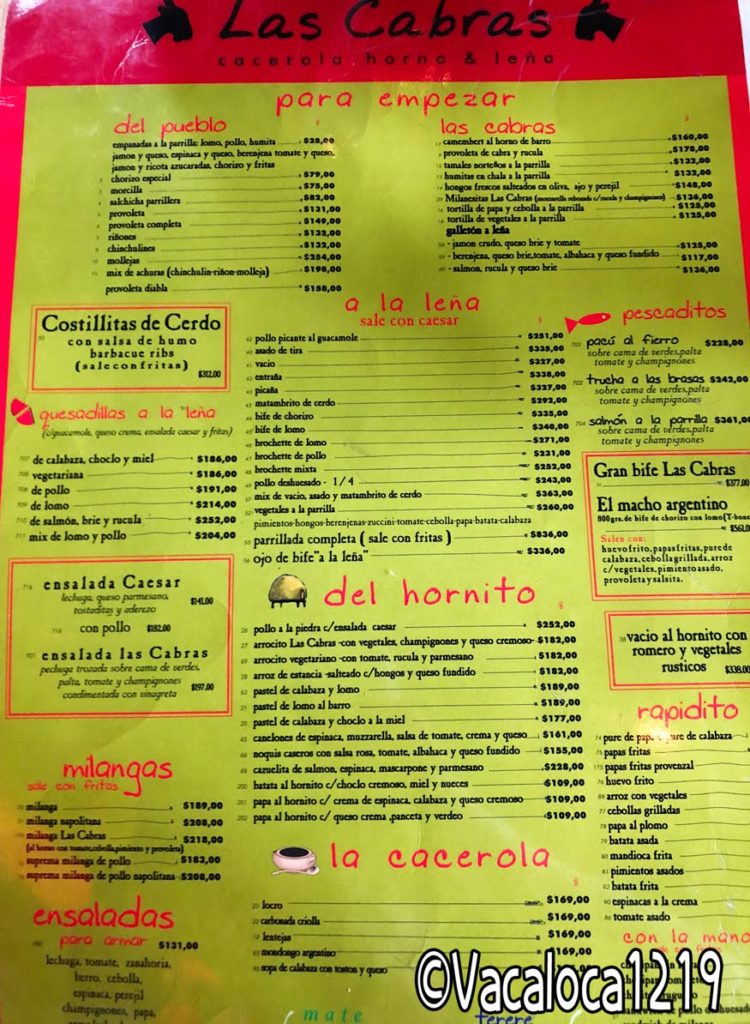 Las Cabras
cacerola horno & leña
para empezar
del pueblo $
empanadas a la parrilla: lomo, pollo, humita $28,00
jamon y queso, espinaca y queso, berenjena tomate y queso,
jamon y ricota azucaradas, chorizo y fritas
chorizo especial $79,00
morcilla $75,00
salchicha parrillera $82,00
provoleta $131,00
provoleta completa $149,00
riñones $132,00
chinchulines $132,00
mollejas $254,00
mix de achuras (chinchulin-riñon-molleja) $198,00
provoleta diabla $158,00
las cabras $
camembert al horno de barro $160,00
provoleta de cabra y rucula $178,00
tamales norteños a la parrilla $132,00
humitas en chala a la parrilla $132,00
hongos frescos salteados en oliva, ajo y perejil $148,00
Milanesitas Las Cabras (mozzarella rebozada c/rucula y champignones) $136,00
tortilla de papa y cebolla a la parrilla $125,00
tortilla de vegetales a la parrilla $125,00
galletón a leña
jamon crudo, queso brie y tomate $125,00
berenjena, queso brie, tomate, albahaca y queso fundido $117,00
salmon, rucula y queso brie $136,00
Costillitas de Cerdo
con salsa de humo
barbacue ribs
(sale con fritas)
$312,00
quesadillas a la leña
(c/guacamole, queso crema, ensalada caesar y fritas)
707 de calabaza, choclo y miel $186,00
708 vegetariana $186,00
708 de pollo $191,00
709 de lomo $214,00
710 de salmón, brie y rucula $252,00
711 mix de lomo y pollo $204,00
ensalada Caesar
lechuga, queso parmesano,
tostaditas y aderezo $141.00
con pollo $182.00
ensalada las Cabras
pechuga trozada sobre cama de verdes,
palta, tomate y champignones
condimentada con vinagreta $197.00
milangas
sale con fritas
milanga $189,00
milanga napolitana $208,00
milanga Las Cabras $218,00
(al horno con tomate,cebolla,pimiento y provoleta)
suprema milanga de pollo $183,00
suprema milanga de pollo napolitana $208,00
ensaladas
para armar $131,00
lechuga, tomate, zanahoria,
berro, cebolla,
espinaca, perejil
champignones, papa,
a la leña
sale con caesar $
pollo picante al guacamole $251,00
asado de tira $335,00
vacio $327,00
entraña $338,00
picaña $327,00
matambrito de cerdo $292,00
bife de chorizo $335,00
bife de lomo $340,00
brochette de lomo $271,00
brochette de pollo $231,00
brochette mixta $252,00
pollo deshuesado - 1/4 $243,00
mix de vacio, asado y matambrito de cerdo $363,00
vegetales a la parrilla $260,00
pimientos-hongos-berenjenas-zuccini-tomate-cebolla-papa-batata-calabaza
53 parrillada completa ( sale con fritas ) $836,00
ojo de bife"a la leña" $336,00
del hornito
$
26 pollo a la piedra c/ensalada caesar $252,00
27 arrocito Las Cabras -con vegetales, champignones y queso cremoso $182,00
69 arrocito vegetariano -con tomate, rucula y parmesano $182,00
28 arroz de estancia -salteado c/hongos y queso fundido $182,00
63 pastel de calabaza y lomo $189,00
21 pastel de lomo al barro $189,00
20 pastel de calabaza y choclo a la miel $177,00
65 canelones de espinaca, muzzarella, salsa de tomate, crema y queso $161,00
66 noquis caseros con salsa rosa, tomate, albahaca y queso fundido $155,00
68 cazuelita de salmon, espinaca, mascarpone y parmesano $228,00
200 batata al hornito c/choclo cremoso, miel y nueces $109,00
201 papa al hornito c/ crema de espinaca, calabaza y queso cremoso $109,00
202 papa al hornito c/ queso crema ,panceta y verdeo $109,00
la cacerola
locro $169,00
22 carbonada criolla $169,00
lentejas $169,00
mondongo argentino $169,00
sopa de calabaza con toston y queso
mate
terere
pescaditos
$
703 pacú al fierro $228,00
sobre cama de verdes,palta
tomate y champignones
702 trucha a las brasas $242,00
sobre cama de verdes,palta
tomate y champignones
704 salmón a la parrilla $361,0
sobre cama de verdes,palta
tomate y champignones
Gran bife Las Cabras
$377,00
El macho argentino
800grs.de bife de chorizo con lomo(T-bone
$561,0
Salen con:
huevo frito, papas fritas, pure de
calabaza, cebolla grillada, arroz
c/vegetales, pimiento asado,
provoleta y salsita.
vacio al hornito con
romero y vegetales
rusticos $338.00
rapidito
74 pure de papa pure de calabaza
75 papas fritas
175 papas fritas provenzal
76 huevo frito
arroz con vegetales
77 cebollas grilladas
78 papa al plomo
79 batata asada
80 mandioca frita
81 pimientos asados
82 batata frita
90 espinacas a la crema
86 tomate asado
con la mano
©Vacaloca1219